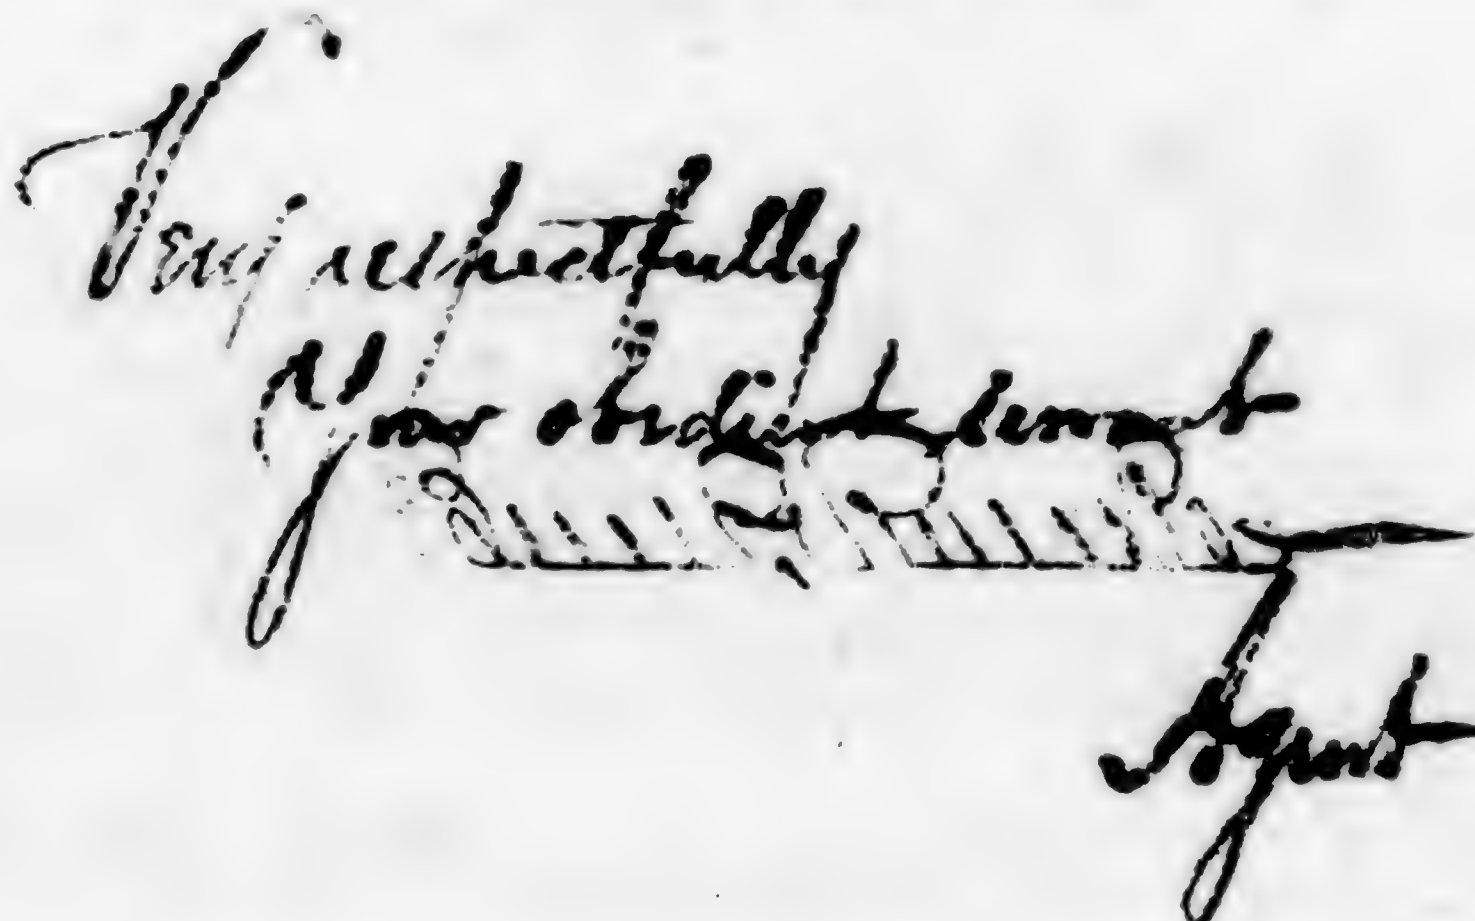 Very respectfully
Your obedient servant
Agent